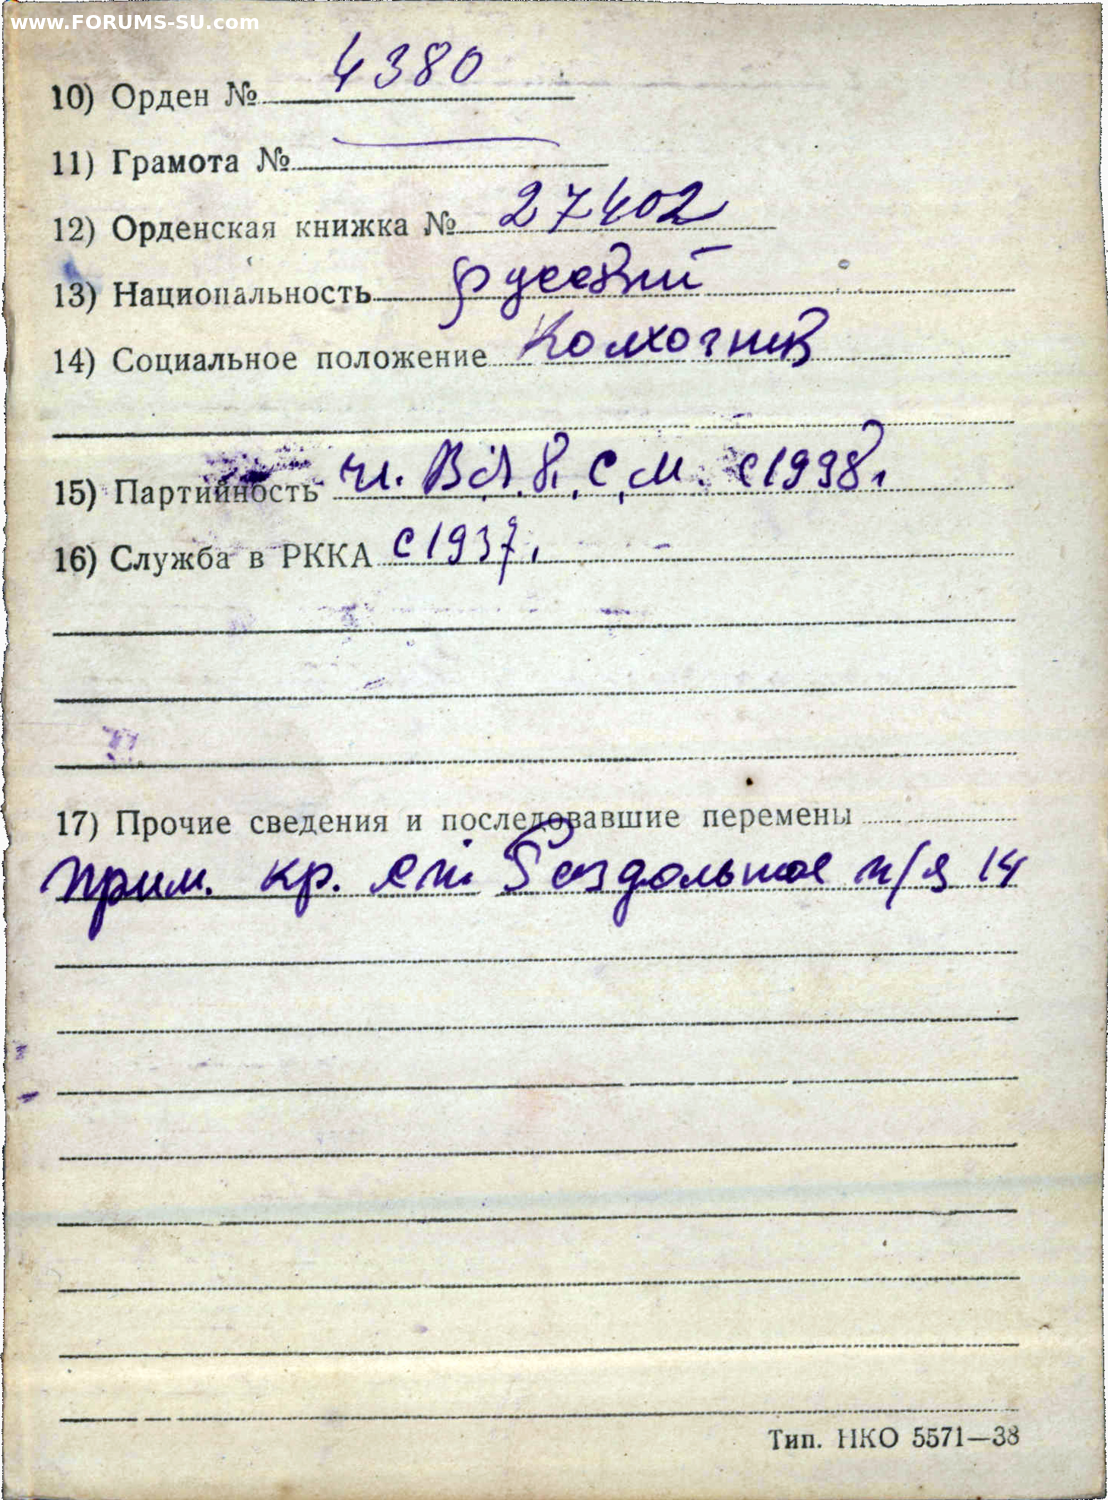 www.FORUMS-SU.com
10) Орден № 4380
11) Грамота № —
12) Орденская книжка № 27402
13) Национальность русский
14) Социальное положение Колхозник
15) Партийность чл. В.Л.К.С.М. с 1938 г.
16) Служба в РККА с 1937.
17) Прочие сведения и последовавшие перемены
прим. кр. ст. Раздольное п/я 14
Тип. НКО 5571—38